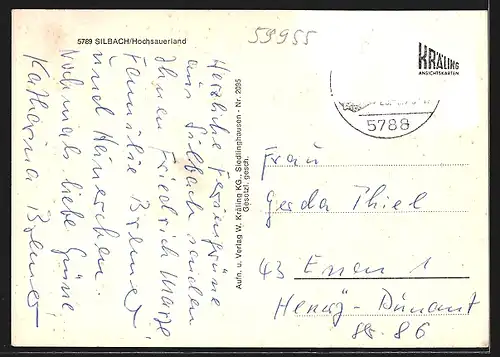 5789 SILBACH/Hochsauerland
59955
KRÄLING
ANSICHTSKARTEN
5788
Herzliche Feriengrüsse
aus Silbach senden
Ihnen Friedrich
Familie Bremer
und Heinerchen.
Nochmals liebe Grüsse
Katharina Bremer
Aufn. u. Verlag W. Kräling KG., Siedlinghausen - Nr. 2295
Gesetzl. gesch.
Frau
Gerda Thiel
43 Essen 1
Henry-Dünant
Str. 86